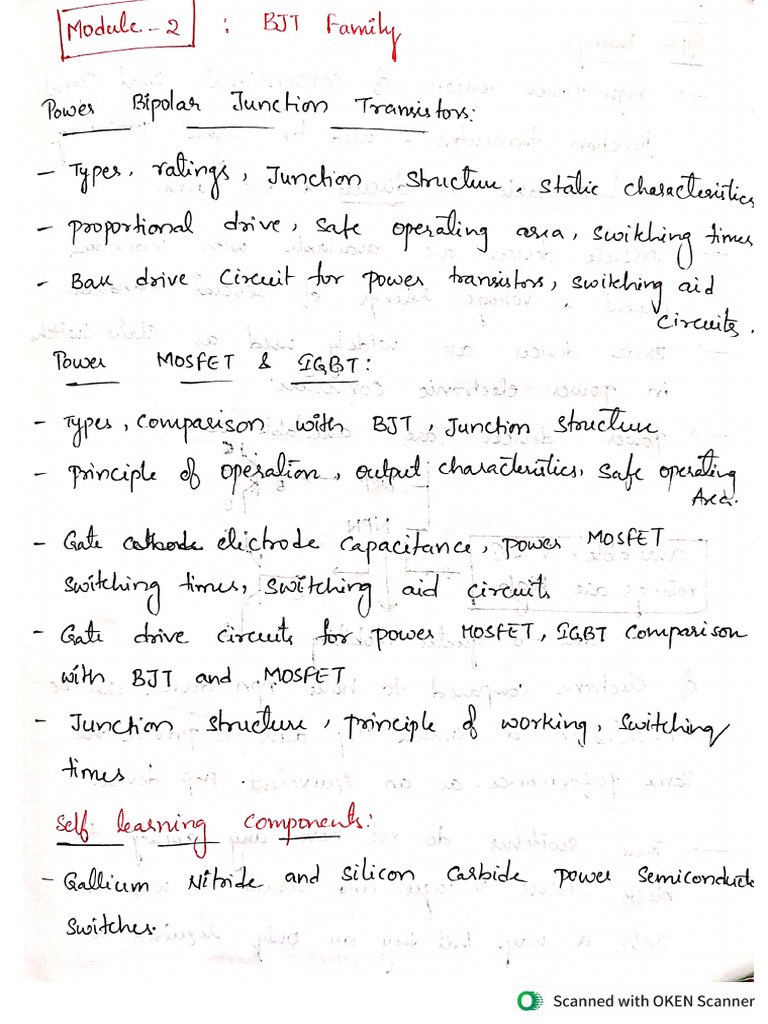 Module - 2 : BJT Family
Power Bipolar Junction Transistors:
- Types, ratings, Junction Structure, Static characteristics
- proportional drive, safe operating area, switching times
- Base drive circuit for power transistors, switching aid
circuits.
Power MOSFET & IGBT:
- Types, comparison with BJT, Junction Structure
- principle of operation, output characteristics, safe operating
Area.
- Gate cathode electrode capacitance, power MOSFET
switching times, switching aid circuits
- Gate drive circuits for power MOSFET, IGBT comparison
with BJT and MOSFET
- Junction structure, principle of working, switching
times
Self learning components:
- Gallium Nitride and Silicon Carbide power Semiconducto
switches.
Scanned with OKEN Scanner